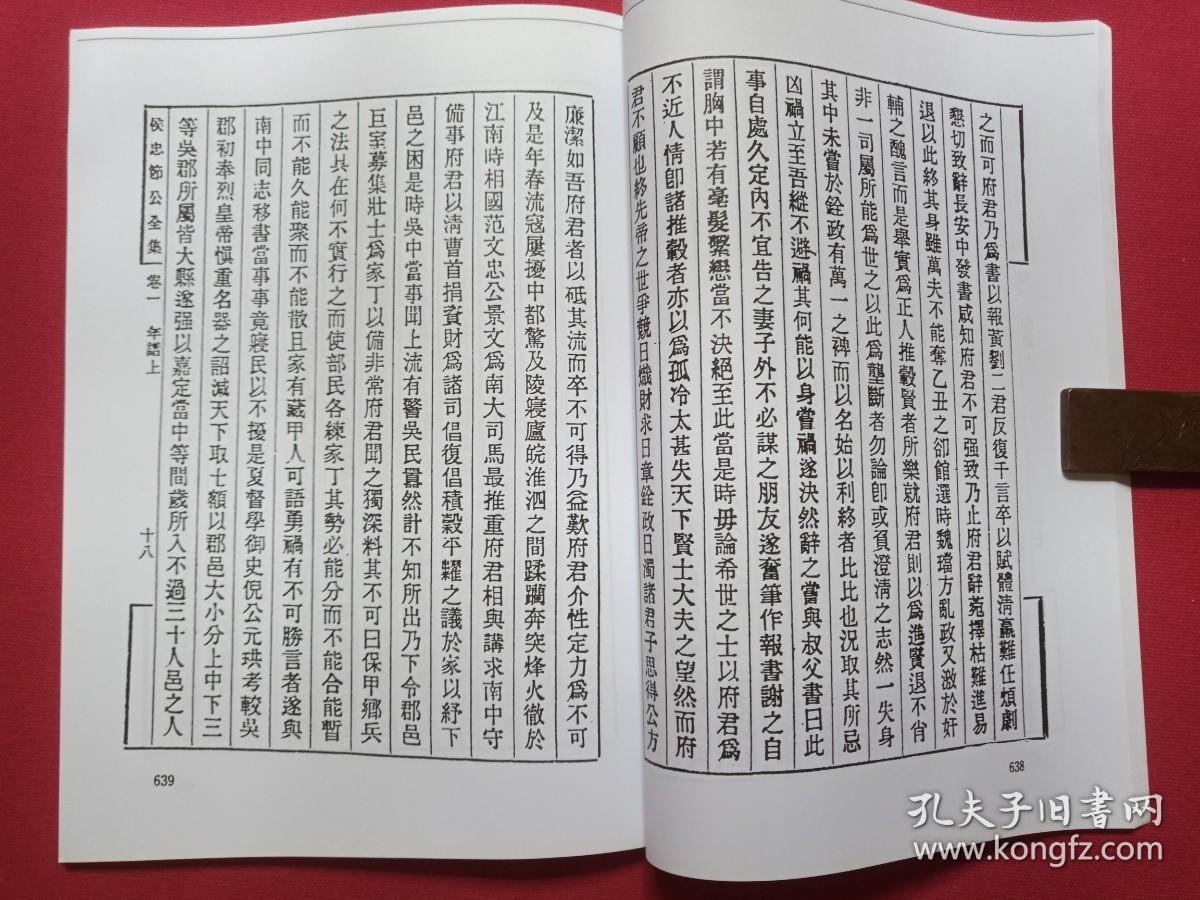 之而可府君乃爲書以報黃劉二君反復千言卒以賦體淸羸難任煩劇
懇切致辭長安中發書咸知府君不可强致乃止府君辭菀擇枯難進易
退以此終其身雖萬夫不能奪乙丑之卻館選時魏璫方亂政又激於奸
輔之醜言而是舉實爲正人推轂賢者所樂就府君則以爲進賢退不肖
非一司屬所能爲世之以此爲壟斷者勿論卽或負澄淸之志然一失身
其中未嘗於銓政有萬一之裨而以名始以利終者比比也況取其所忌
凶禍立至吾縱不避禍其何能以身嘗禍遂決然辭之嘗與叔父書曰此
事自處久定內不宜告之妻子外不必謀之朋友遂奮筆作報書謝之自
謂胸中若有毫髮繫戀當不決絕至此當是時毋論希世之士以府君爲
不近人情卽諸推轂者亦以爲孤冷太甚失天下賢士大夫之望然而府
君不顧也終先帝之世爭競日熾財求日章銓政日濁諸君子思得公方
638
廉潔如吾府君者以砥其流而卒不可得乃益歎府君介性定力爲不可
及是年春流寇屢擾中都驚及陵寢廬皖淮泗之間蹂躪奔突烽火徹於
江南時相國范文忠公景文爲南大司馬最推重府君相與講求南中守
備事府君以淸曹首捐資財爲諸司倡復倡積穀平糶之議於家以紓下
邑之困是時吳中當事聞上流有警吳民囂然計不知所出乃下令郡邑
巨室募集壯士爲家丁以備非常府君聞之獨深料其不可曰保甲鄉兵
之法具在何不實行之而使部民各練家丁其勢必能分而不能合能暫
而不能久能聚而不能散且家有藏甲人可語勇禍有不可勝言者遂與
南中同志移書當事事竟寢民以不擾是夏督學御史倪公元珙考較吳
郡初奉烈皇帝愼重名器之詔減天下取士額以郡邑大小分上中下三
等吳郡所屬皆大縣遂强以嘉定當中等間歲所入不過三十人邑之人
侯忠節公全集 卷一 年譜上 十八
639
孔夫子旧书网
www.kongfz.com